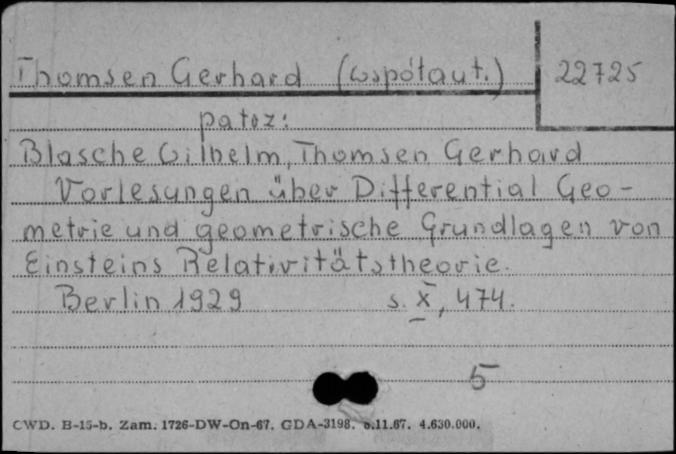 Thomsen Gerhard (współaut.)
22725
patrz:
Blasche Wilhelm, Thomsen Gerhard
Vorlesungen über Differential Geo-
metrie und geometrische Grundlagen von
Einsteins Relativitätstheorie.
Berlin 1929 s. X, 474.
5
CWD. B-15-b. Zam. 1726-DW-On-67. GDA-3198. 6.11.67. 4.630.000.